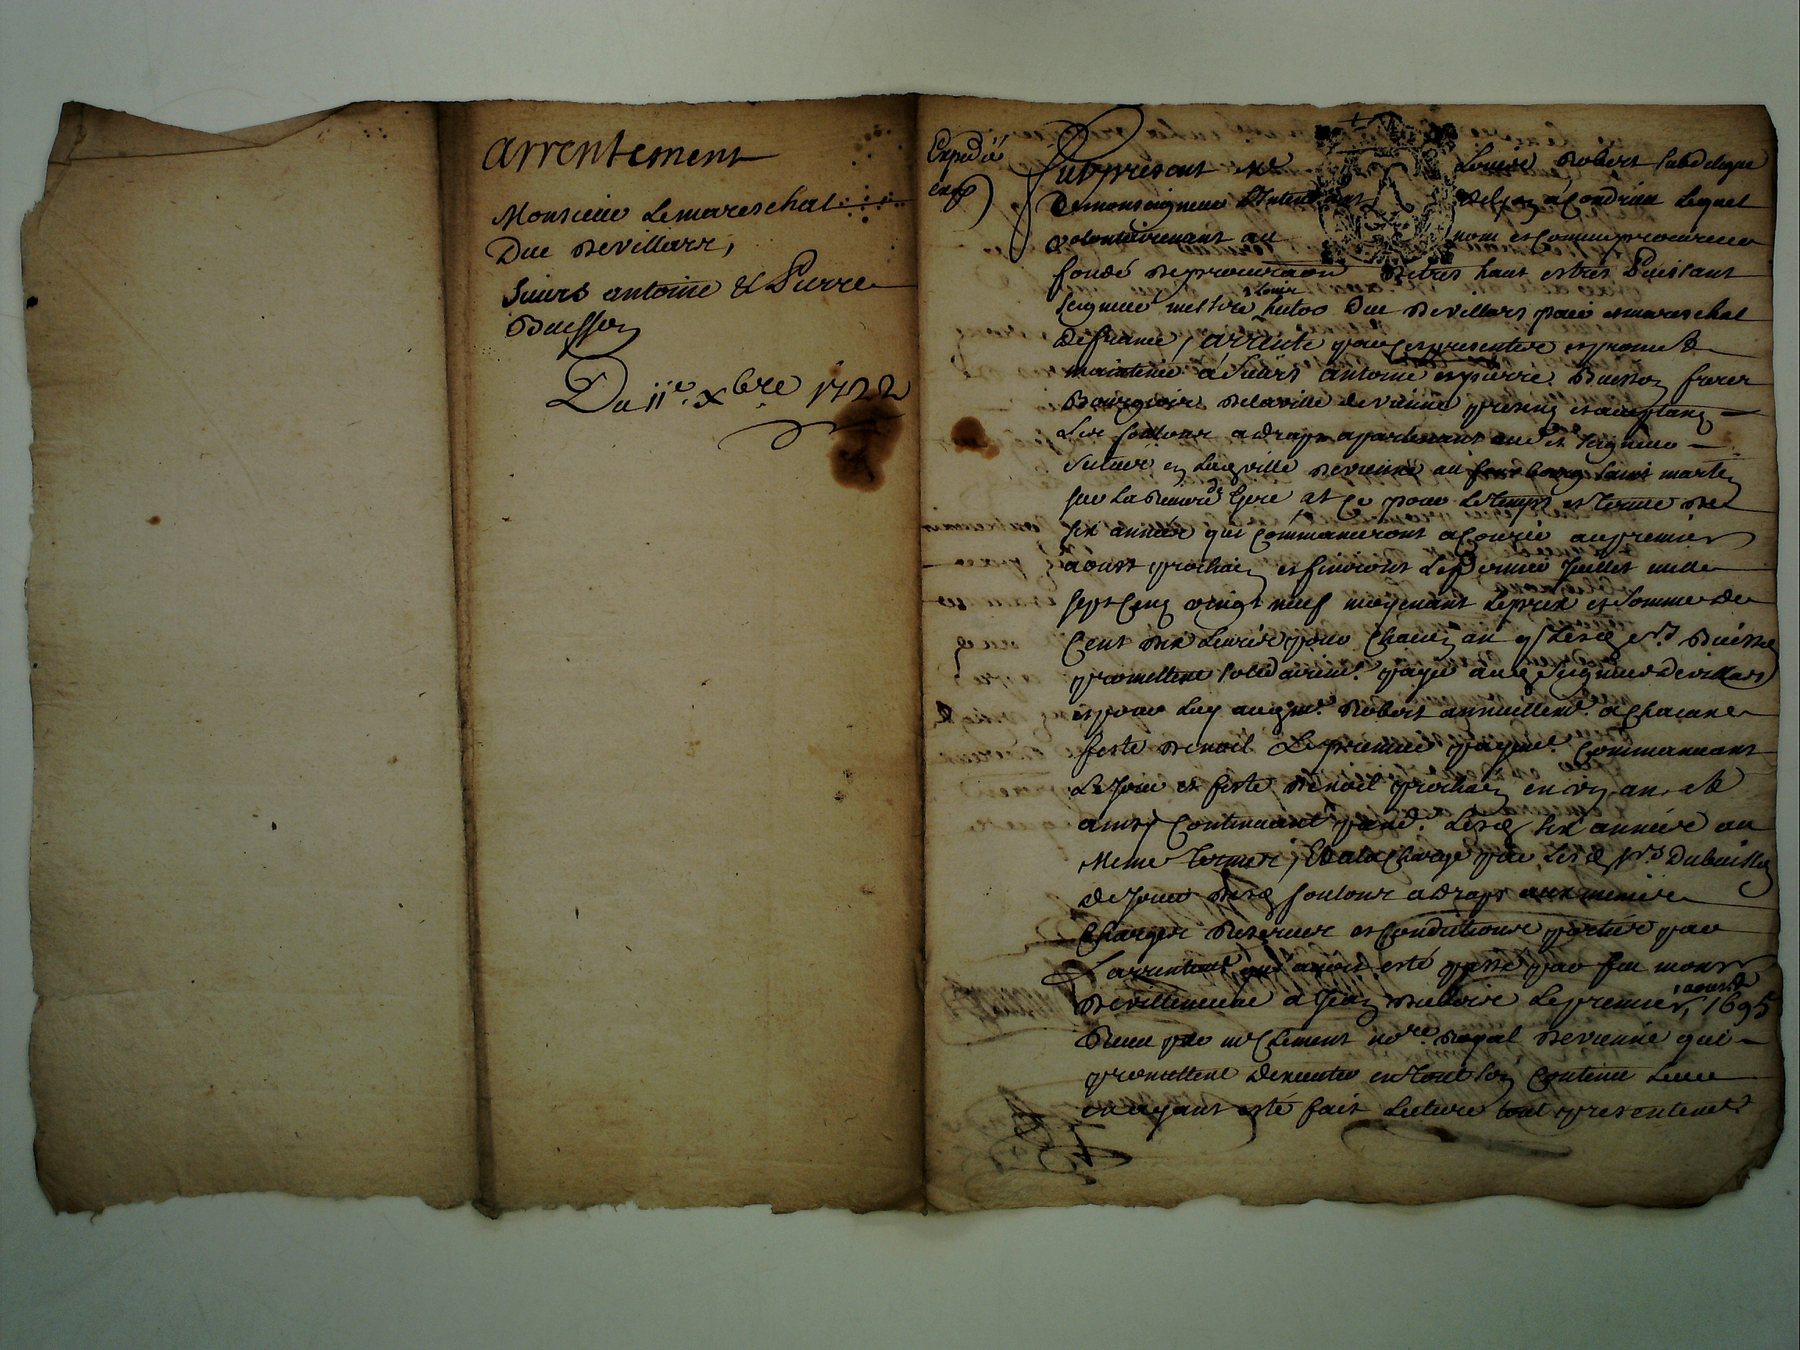 arrentement
Monsieur Lemareschal
Duc Devillars,
Sieurs antoine & Pierre
Buisson
Du 11e. Xbre 1722
Expedié
Fut present Me Louis Robert subdelegué
De monseigneur L'Intendant a Condrieu Lequel
volontairement au nom et comme procureur
fondé de procuraon de tres haut et tres Puissant
seigneur messire Louis hector Duc Devillars pair et mareschal
De france, arrente par ces presentes et promet
maintenir a Sieurs antoine et pierre Buisson freres
Bourgeois De la ville de vienne presens et acceptans
Les foulons a draps apartenant aud. seigneur
Scitues en lad. ville de vienne au fauxbourg Saint martin
sur la Riviere de Gere et ce pour Le temps et terme de
six années qui commanceront a Courir au premier
aoust prochain et finiront Le dernier Juillet mille
sept cens vingt neuf moyenant Le prix et Somme de
Cent dix Livres pour chacun an Lesd. srs Buisson
promettent solidairemt. payer aud. Seigneur Devillars
et pour Luy aud. me. Robert annuellemt. a chacune
feste de noel Le premier payemt. Commancant
Le Jour et feste de noel prochain en un an et
ainsy Continuant pand. Lesd. six années au
Meme terme, Et a la charge par Lesd. srs Dubuisson
de Jouir desd. foulons a draps aux memes
charges Reserves et Conditions portées par
L'arrentemt qui avoit esté passé par feu monsr
De villeneuve a Jean Le premier, 1 aoust 1695
Receu par me Clement nore. Royal de vienne qui
promettent dexecuter en tout son contenu Leur
en ayant esté fait Lecture tout presentement